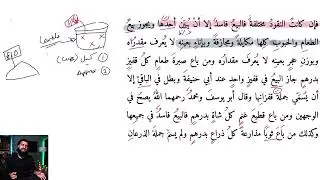 فإن كانت النقود مختلفة فالبيع فاسد إلا أن يبين أحدها ويجوز بيع
الطعام والحبوب كلها مكايلة ومجازفة وبإناء بعينه لا يعرف مقداره
وبوزن حجر بعينه لا يعرف مقداره ومن باع صبرة طعام كل قفيز
بدرهم جاز البيع في قفيز واحد عند أبي حنيفة وبطل في الباقي إلا
أن يسمي جملة قفزانها وقال أبو يوسف ومحمد رحمهما الله يصح في
الوجهين ومن باع قطيع غنم كل شاة بدرهم فالبيع فاسد في جميعها
وكذلك من باع ثوبا مذارعة كل ذراع بدرهم ولم يسم جملة الذرعان
(cups) كيل ①
Approx ②